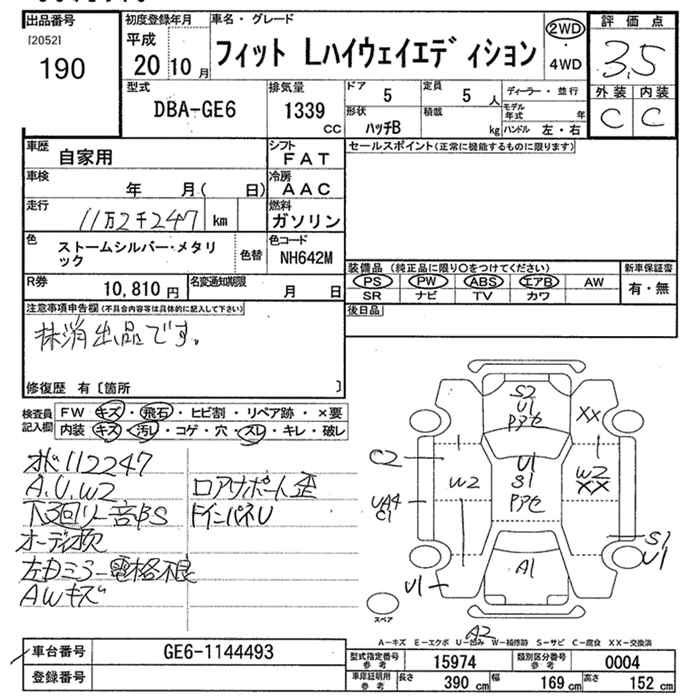 出品番号 初度登録年月 車名・グレード 評価点
[2052] 平成 フィット Lハイウェイエディション 2WD 3.5
190 20年10月 ・4WD
型式 排気量 ドア 定員 ディーラー・並行 外装 内装
DBA-GE6 1339 CC 5 5人 モデル年式 年 C C
形状 積載
ハッチB kg ハンドル 左・右
車歴 自家用 シフト FAT セールスポイント(正常に機能するものに限ります)
車検 年 月( 日) 冷房 AAC
走行 11万2千247 km 燃料 ガソリン
色 ストームシルバー・メタリック 色替 色コード NH642M
装備品 (純正品に限り○をつけてください) 新車保証書
R券 10,810円 名変通知期限 月 日 PS PW ABS エアB AW 有・無
SR ナビ TV カワ
注意事項申告欄(不具合内容等は具体的に記入して下さい) 後日品
抹消出品です。
修復歴 有〔箇所 〕
検査員記入欄 FW キズ・飛石・ヒビ割・リペア跡・×要
内装 キズ・汚レ・コゲ・穴・スレ・キレ・破レ
112247
A.U.W2 ロアサポート歪
下3回リ
オーディオ欠
左ドミラー電格不良
AWキズ
S2
U1
XX
C2
U1
S1
W2
W2
XX
UA4
C1
S1
U1
A1
U1
スペア
A2
A−キズ E−エクボ U−凹み W−補修跡 S−サビ C−腐食 XX−交換済
車台番号 GE6-1144493 型式指定番号 参考 15974 類別区分番号 参考 0004
登録番号 車庫証明用 参考 長さ 390 cm 幅 169 cm 高さ 152 cm